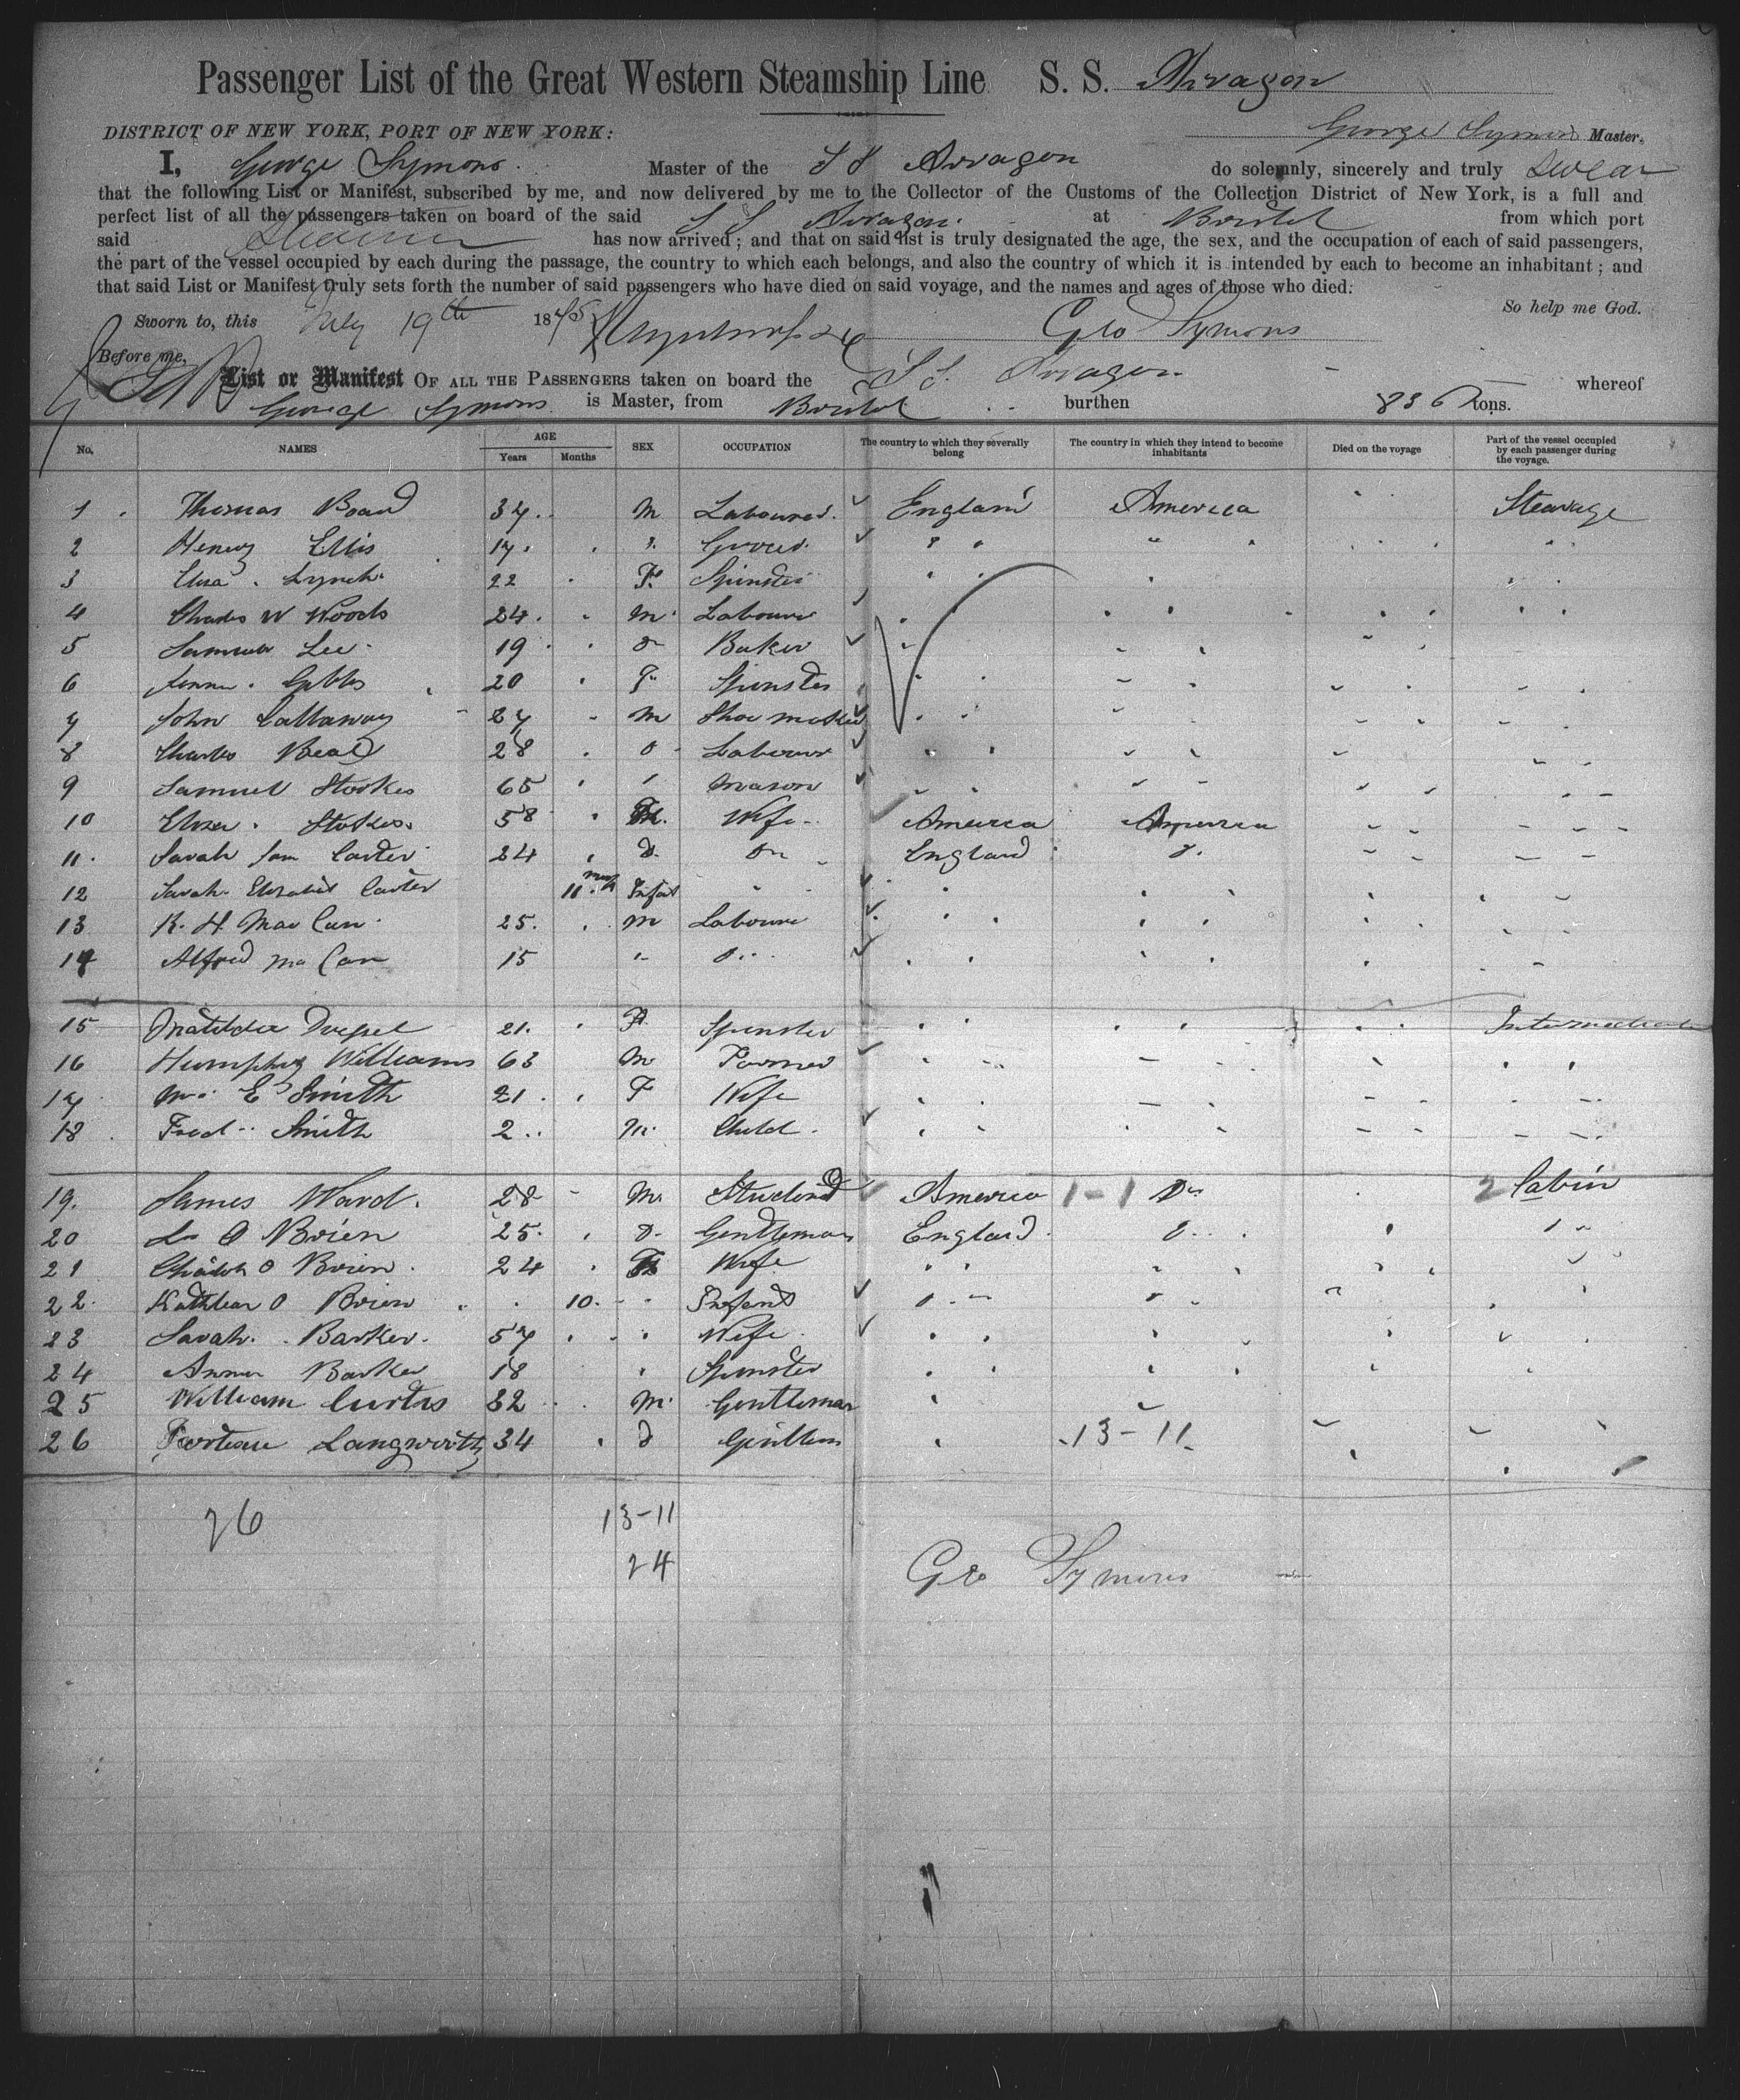 Passenger List of the Great Western Steamship Line S. S. Arragon
DISTRICT OF NEW YORK, PORT OF NEW YORK: George Symons Master.
I, George Symons Master of the S S Arragon do solemnly, sincerely and truly swear
that the following List or Manifest, subscribed by me, and now delivered by me to the Collector of the Customs of the Collection District of New York, is a full and
perfect list of all the passengers taken on board of the said S S Arragon at Bristol from which port
said Steamer has now arrived; and that on said list is truly designated the age, the sex, and the occupation of each of said passengers,
the part of the vessel occupied by each during the passage, the country to which each belongs, and also the country of which it is intended by each to become an inhabitant; and
that said List or Manifest truly sets forth the number of said passengers who have died on said voyage, and the names and ages of those who died.
So help me God.
Sworn to, this July 19th 18 Geo Symons
Before me,
List or Manifest OF ALL THE PASSENGERS taken on board the S S. Arragon whereof
George Symons is Master, from Bristol burthen 836 tons.
No. NAMES AGE Years Months SEX OCCUPATION The country to which they severally belong The country in which they intend to become inhabitants Died on the voyage Part of the vessel occupied by each passenger during the voyage.
1 Thomas Board 37 M Labourer England America Steerage
2 Henry Ellis 17 " Grocer " " " "
3 Eliza Lynch 22 F. Spinster " "
4 Charles W Woods 24 M Labourer
5 Samuel Lee 19 do Baker
6 Gibbs 20 F Spinster
7 John Callaway 27 M Shoe maker
8 Charles Beal 28 Labourer
9 Samuel Stookes 65 " Mason
10 Eliza Stokes 58 F. Wife America America
11. Sarah Jane Carter 24 D. Do England D.
12 Sarah Elizabeth Carter 11 mos Infant
13 R. H. Mac Can 25. M Labourer
14 Alfred Mc Can 15 " D
15 Matilda 21. F. Spinster Intermediate
16 Humphry Williams 63 M Farmer
17 Mrs E Smith 21 F Wife
18 Fred Smith 2 M. Child
19. James Ward 28 M. Student America 1-1 Do 2 Cabin
20 O Brien 25. D. Gentleman England D "
21 O Brien 24 F Wife
22. Kathlean O Brien 10. Infant
23 Sarah Barker 57 " Wife
24 Anna Barker 18 " Spinster
25 William Curtis 32 M. Gentleman
26 Langworthy 34 d Gentlem 13-11
26 13-11
24 Geo Symons